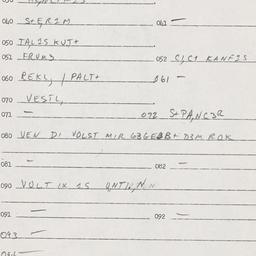 040 S+ERIM 041 —
050 TAL2S KUT+
051 FRUKS 052 C,C+ KANF2S
060 REKL, / PALT+ 061 —
070 VESTL,
071 — 072 S+PA,NC3R
080 VEN DI VOLST MIR G3GEBB+ D3M ROK
081 — 082 —
090 VOLT IX 2S
091 — 092 —
093 —